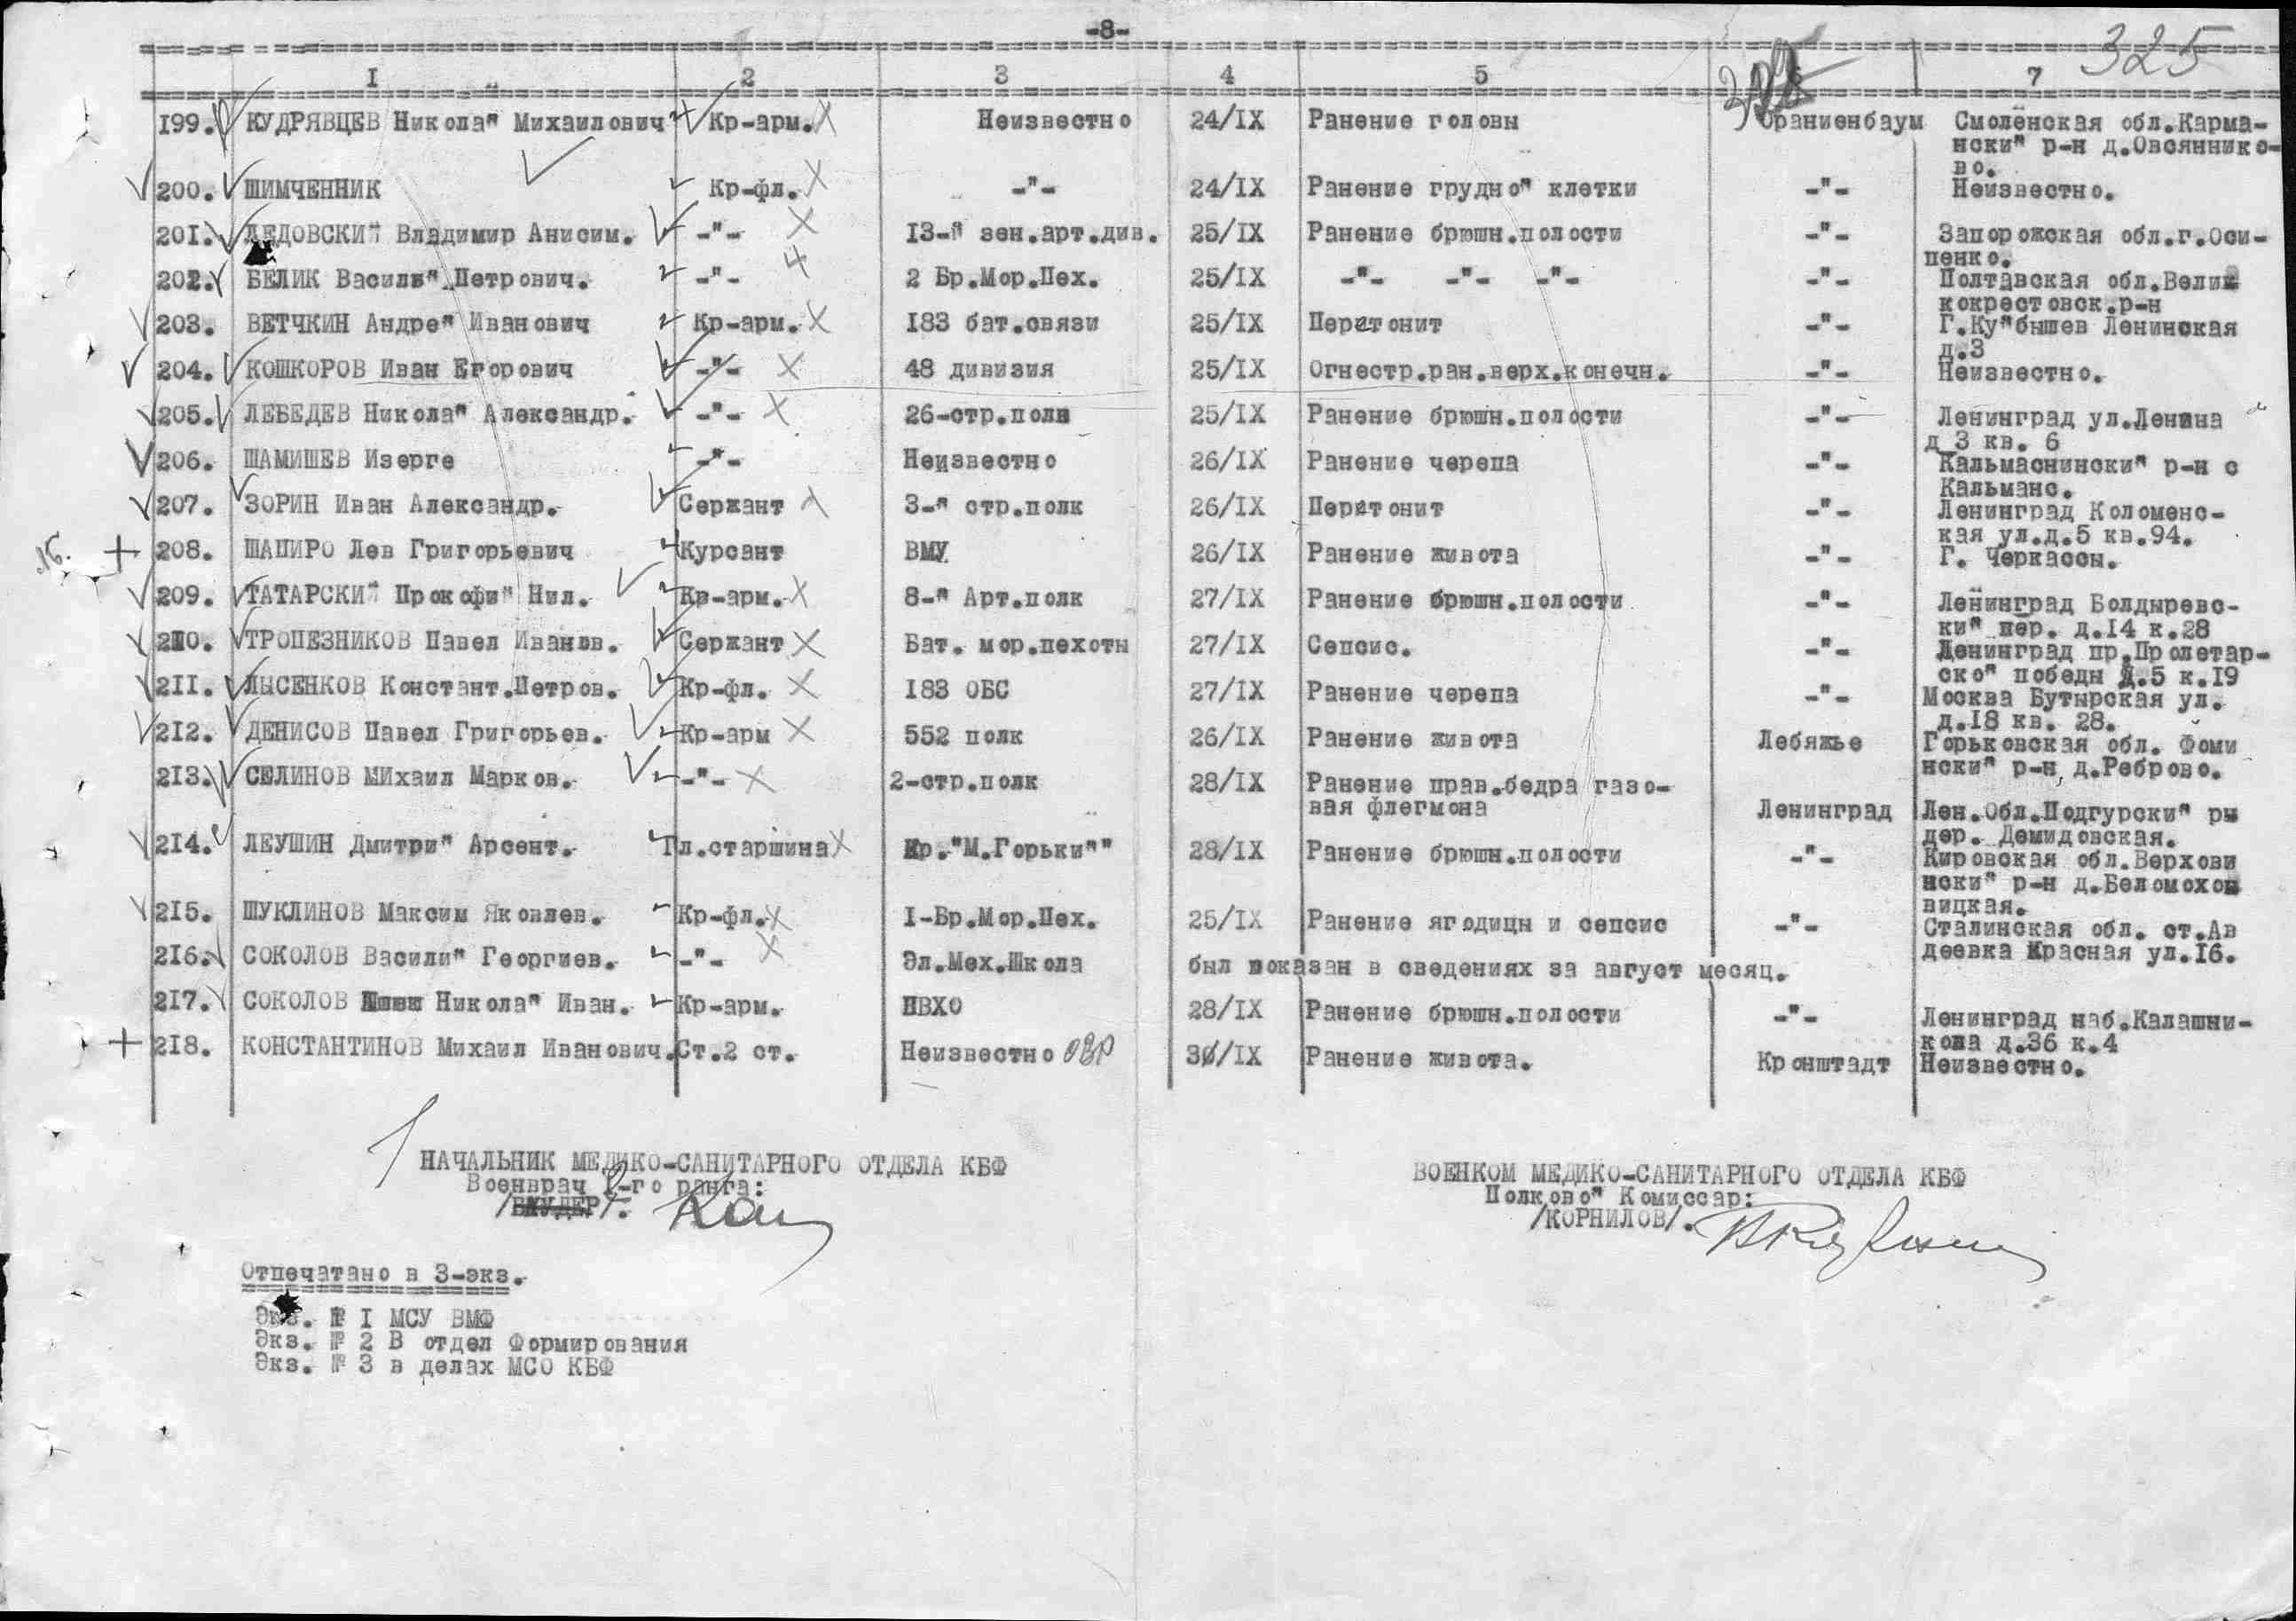 -8-
325
1 2 3 4 5 7
199. КУДРЯВЦЕВ Никола" Михаилович Кр-арм. Неизвестно 24/IX Ранение головы Ораниенбаум Смоленская обл.Карма-
нски" р-н д.Овсяннико-
во.
200. ШИМЧЕННИК Кр-фл. -"- 24/IX Ранение грудно" клетки -"- Неизвестно.
201. ЛЕДОВСКИ" Владимир Анисим. -"- 13-" зен.арт.див. 25/IX Ранение брюшн.полости -"- Запорожская обл.г.Оси-
пенко.
202. БЕЛИК Васили" Петрович. -"- 2 Бр.Мор.Пех. 25/IX -"- -"- -"- -"- Полтавская обл.Вели
кокрестовск.р-н
203. ВЕТЧКИН Андре" Иванович Кр-арм. 183 бат.связи 25/IX Перитонит -"- Г.Ку"бышев Ленинская
д.3
204. КОШКОРОВ Иван Егорович -"- 48 дивизия 25/IX Огнестр.ран.верх.конечн. -"- Неизвестно.
205. ЛЕБЕДЕВ Никола" Александр. -"- 26-стр.полк 25/IX Ранение брюшн.полости -"- Ленинград ул.Ленина
д 3 кв. 6
206. ШАМИШЕВ Изерге -"- Неизвестно 26/IX Ранение черепа -"- Кальмаснински" р-н с
Кальманс.
207. ЗОРИН Иван Александр. Сержант 3-" стр.полк 26/IX Перитонит -"- Ленинград Коломенс-
кая ул.д.5 кв.94.
208. ШАПИРО Лев Григорьевич Курсант ВМУ 26/IX Ранение живота -"- Г. Черкассы.
209. ТАТАРСКИ" Прокофи" Нил. Кр-арм. 8-" Арт.полк 27/IX Ранение брюшн.полости -"- Ленинград Болдыревс-
ки" пер. д.14 к.28
210. ТРОПЕЗНИКОВ Павел Иванов. Сержант Бат. мор.пехоты 27/IX Сепсис. -"- Ленинград пр.Пролетар-
ско" победы Д.5 к.19
211. ЛЫСЕНКОВ Констант.Петров. Кр-фл. 183 ОБС 27/IX Ранение черепа -"- Москва Бутырская ул.
д.18 кв. 28.
212. ДЕНИСОВ Павел Григорьев. Кр-арм 552 полк 26/IX Ранение живота Лебяжье Горьковская обл. Фоми
нски" р-н д.Реброво.
213. СЕЛИНОВ Михаил Марков. -"- 2-стр.полк 28/IX Ранение прав.бедра газо-
вая флегмона Ленинград Лен.Обл.Подгурски" рн
дер. Демидовская.
214. ЛЕУШИН Дмитри" Арсент. Гл.старшина Кр."М.Горьки"" 28/IX Ранение брюшн.полости -"- Кировская обл.Верхови
нски" р-н д.Беломохов
вицкая.
215. ШУКЛИНОВ Максим Яковлев. Кр-фл. 1-Бр.Мор.Пех. 25/IX Ранение ягодицы и сепсис -"- Сталинская обл. ст.Ав
деевка Красная ул.16.
216. СОКОЛОВ Васили" Георгиев. -"- Эл.Мех.Школа был показан в сведениях за август месяц.
217. СОКОЛОВ Никола" Иван. Кр-арм. ПВХО 28/IX Ранение брюшн.полости -"- Ленинград наб.Калашни-
кова д.36 к.4
218. КОНСТАНТИНОВ Михаил Иванович. Ст.2 ст. Неизвестно ОВР 30/IX Ранение живота. Кронштадт Неизвестно.
НАЧАЛЬНИК МЕДИКО-САНИТАРНОГО ОТДЕЛА КБФ
Военврач 2-го ранга:
ВОЕНКОМ МЕДИКО-САНИТАРНОГО ОТДЕЛА КБФ
Полково" Комиссар:
/КОРНИЛОВ/.
Отпечатано в 3-экз.
Экз. № 1 МСУ ВМФ
Экз. № 2 В отдел Формирования
Экз. № 3 в делах МСО КБФ